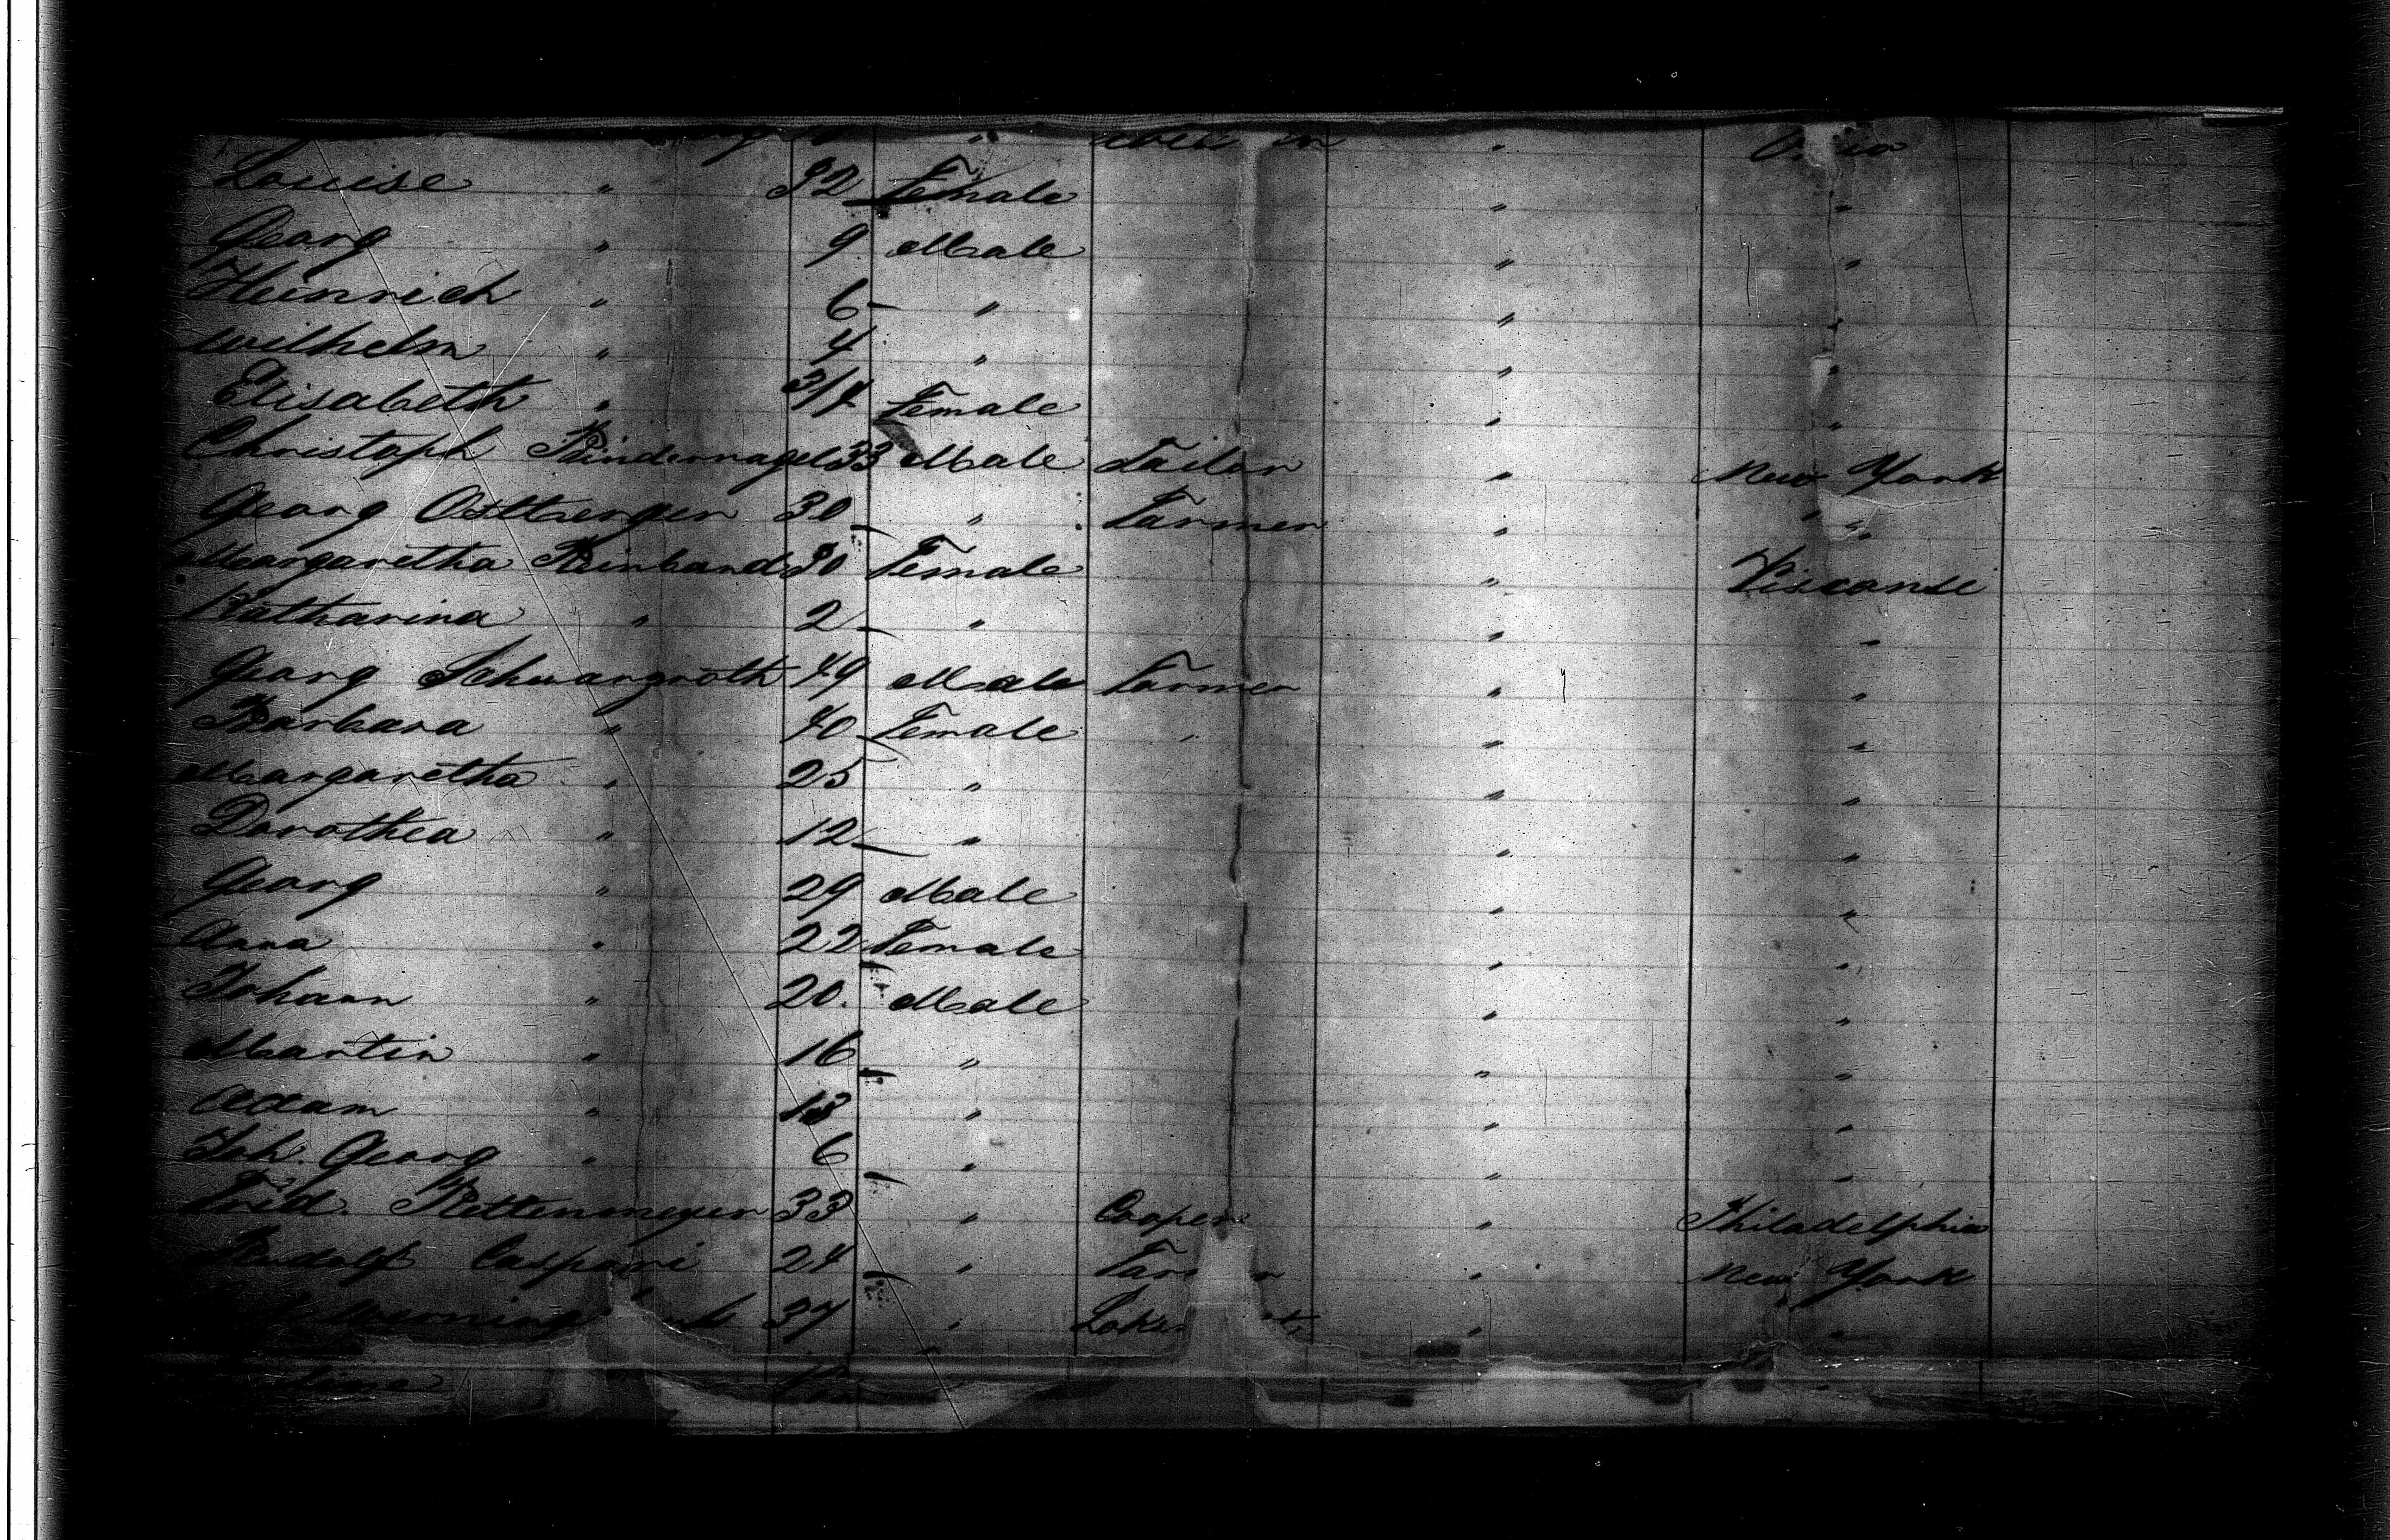 Louise " 32 Female " "
Georg " 9 Male " "
Heinrich " 6 " " "
Wilhelm " 4 " " "
Elisabeth " 3/4 Female " "
Christoph Bindernagel 33 Male Tailor " New York
Georg Ostberger 30 " Farmer " "
Margaretha Reinband 30 Female " Visconsi
Katharina " 2 " " "
Georg Schwangroth 49 Male Farmer " "
Barbara " 40 Female " " "
Margaretha " 25 " " "
Dorothea " 12 " " "
Georg " 29 Male " "
Anna " 22 Female " "
Johann " 20. Male " "
Martin " 16 " " "
Adam " 13 " " "
Joh. Georg " 6 " " "
Frid. Rettenmeyer 33 " Cooper " Philadelphia
Rudolf Caspari 24 " " New York
37 " " "